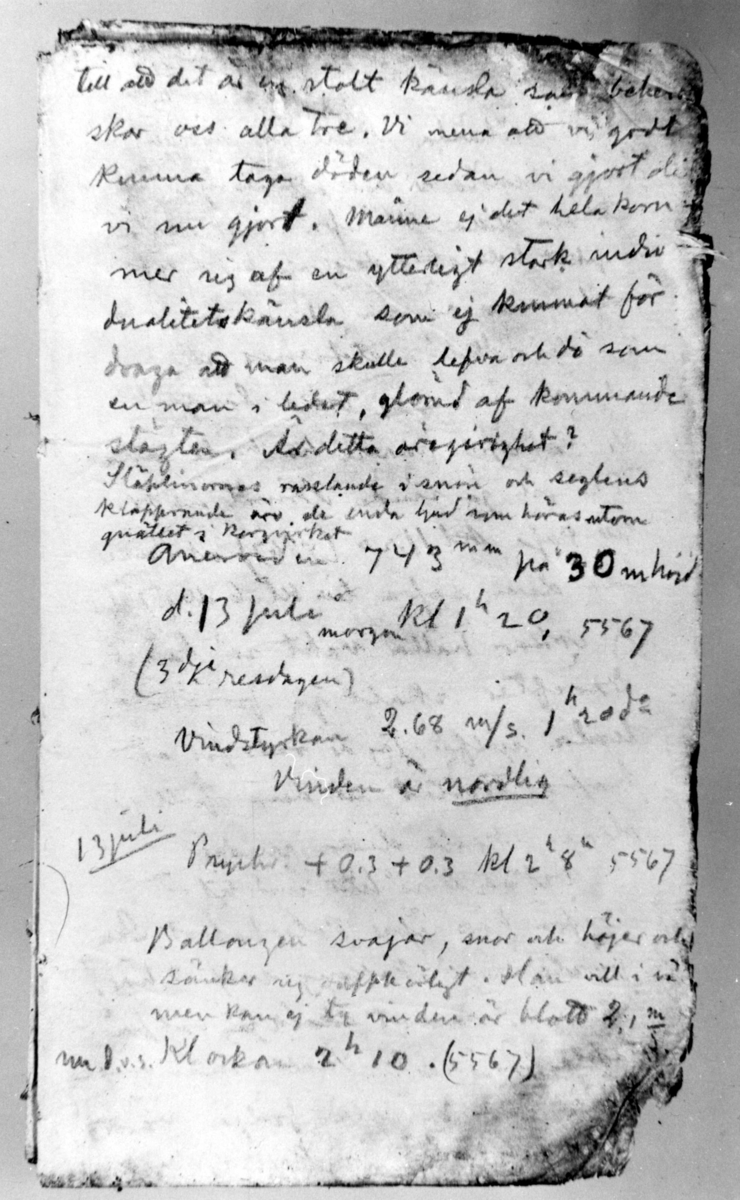 till att det är en stolt känsla som beherr
skar oss alla tre. Vi mena att vi godt
kunna taga döden sedan vi gjort de
vi nu gjort. Månne ej det hela kom-
mer sig af en ytterligt stark indivi
dualitetskänsla som ej kunnat för
draga att man skulle lefva och dö som
en man i ledet, glömd af kommande
slägten. Är detta äregirighet?
Släplinornas rasslande i snön och seglens
klapprande äro de enda ljud som höras utom
gnället i korgvirket
Aneroiden 743 mm på 30 m höjd
d. 13 juli morgon kl 1h 20, 5567
(3dje resdagen)
Vindstyrkan 2.68 m/s. 1h 20 do
Vinden är nordlig
13 juli
Psychr. +0.3 +0.3 kl 2h 8 5567
Ballongen svajar, snor och höjer och
sänker sig oupphörligt. Han vill i vä
men kan ej ty vinden är blott 2,1 m
nu d.v.s. Klockan 2h 10. (5567)